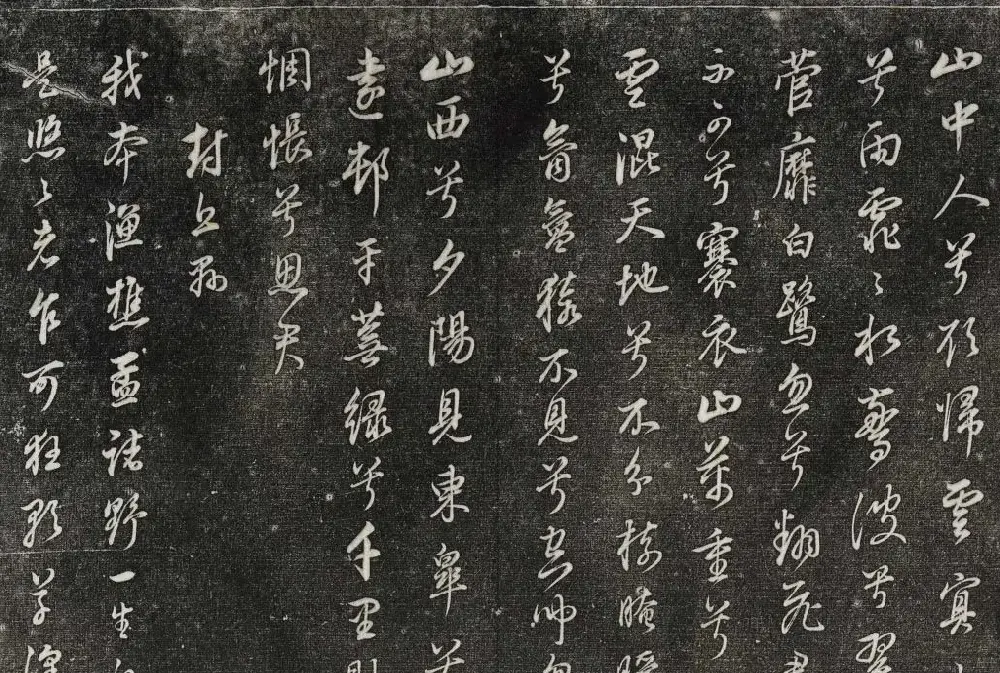 山中人兮欲歸雲冥
兮雨霏〻水驚波兮翠
菅靡白鷺忽兮翻飛君
不可兮褰衣山萬重兮
雲混天地兮不分樹晻曖
兮氛氳猿不見兮空聞忽
山西兮夕陽見東皋兮
遠邨平蕪綠兮千里眇
惆悵兮思君
封丘縣
我本漁樵孟諸野一生自
是悠〻者乍可狂歌草澤